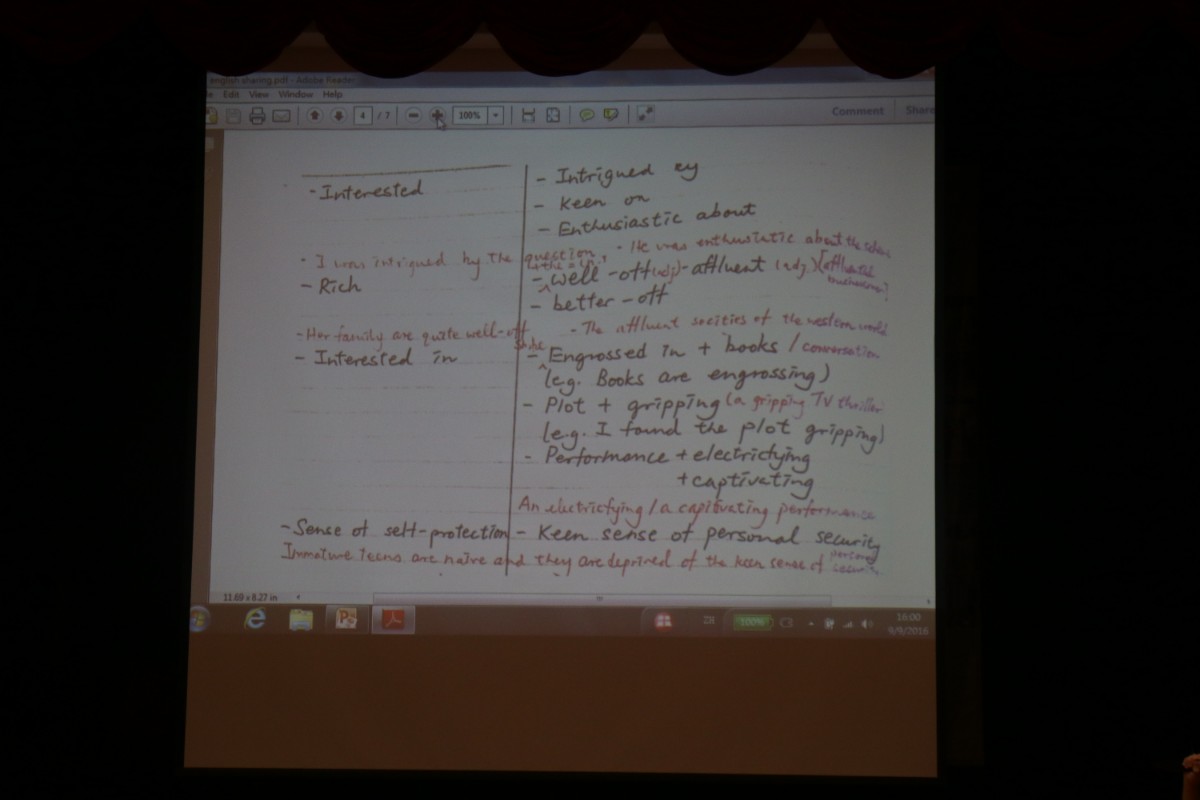 english sharing.pdf - Adobe Reader
Edit View Window Help
4 / 7 100% Comment Share
- Interested
- Intrigued
- Keen on
- Enthusiastic about
- I was intrigued by the question. - He was enthusiatic about the
- Rich
- well-off (adj) - affluent (adj.)
- better-off
- Her family are quite well-off - The affluent socities of the western world
- Interested in
- Engrossed in + books / conversation
(e.g. Books are engrossing)
- Plot + gripping (a gripping TV thriller)
(e.g. I found the plot gripping)
- Performance + electricfying
+ captivating
An electricfying / a capitivating performance
- Sense of self-protection - Keen sense of personal security
Immature teens are naive and they are deprived of the keen sense of personal security
11.69 x 8.27 in
ZH 100% 16:00
9/9/2016